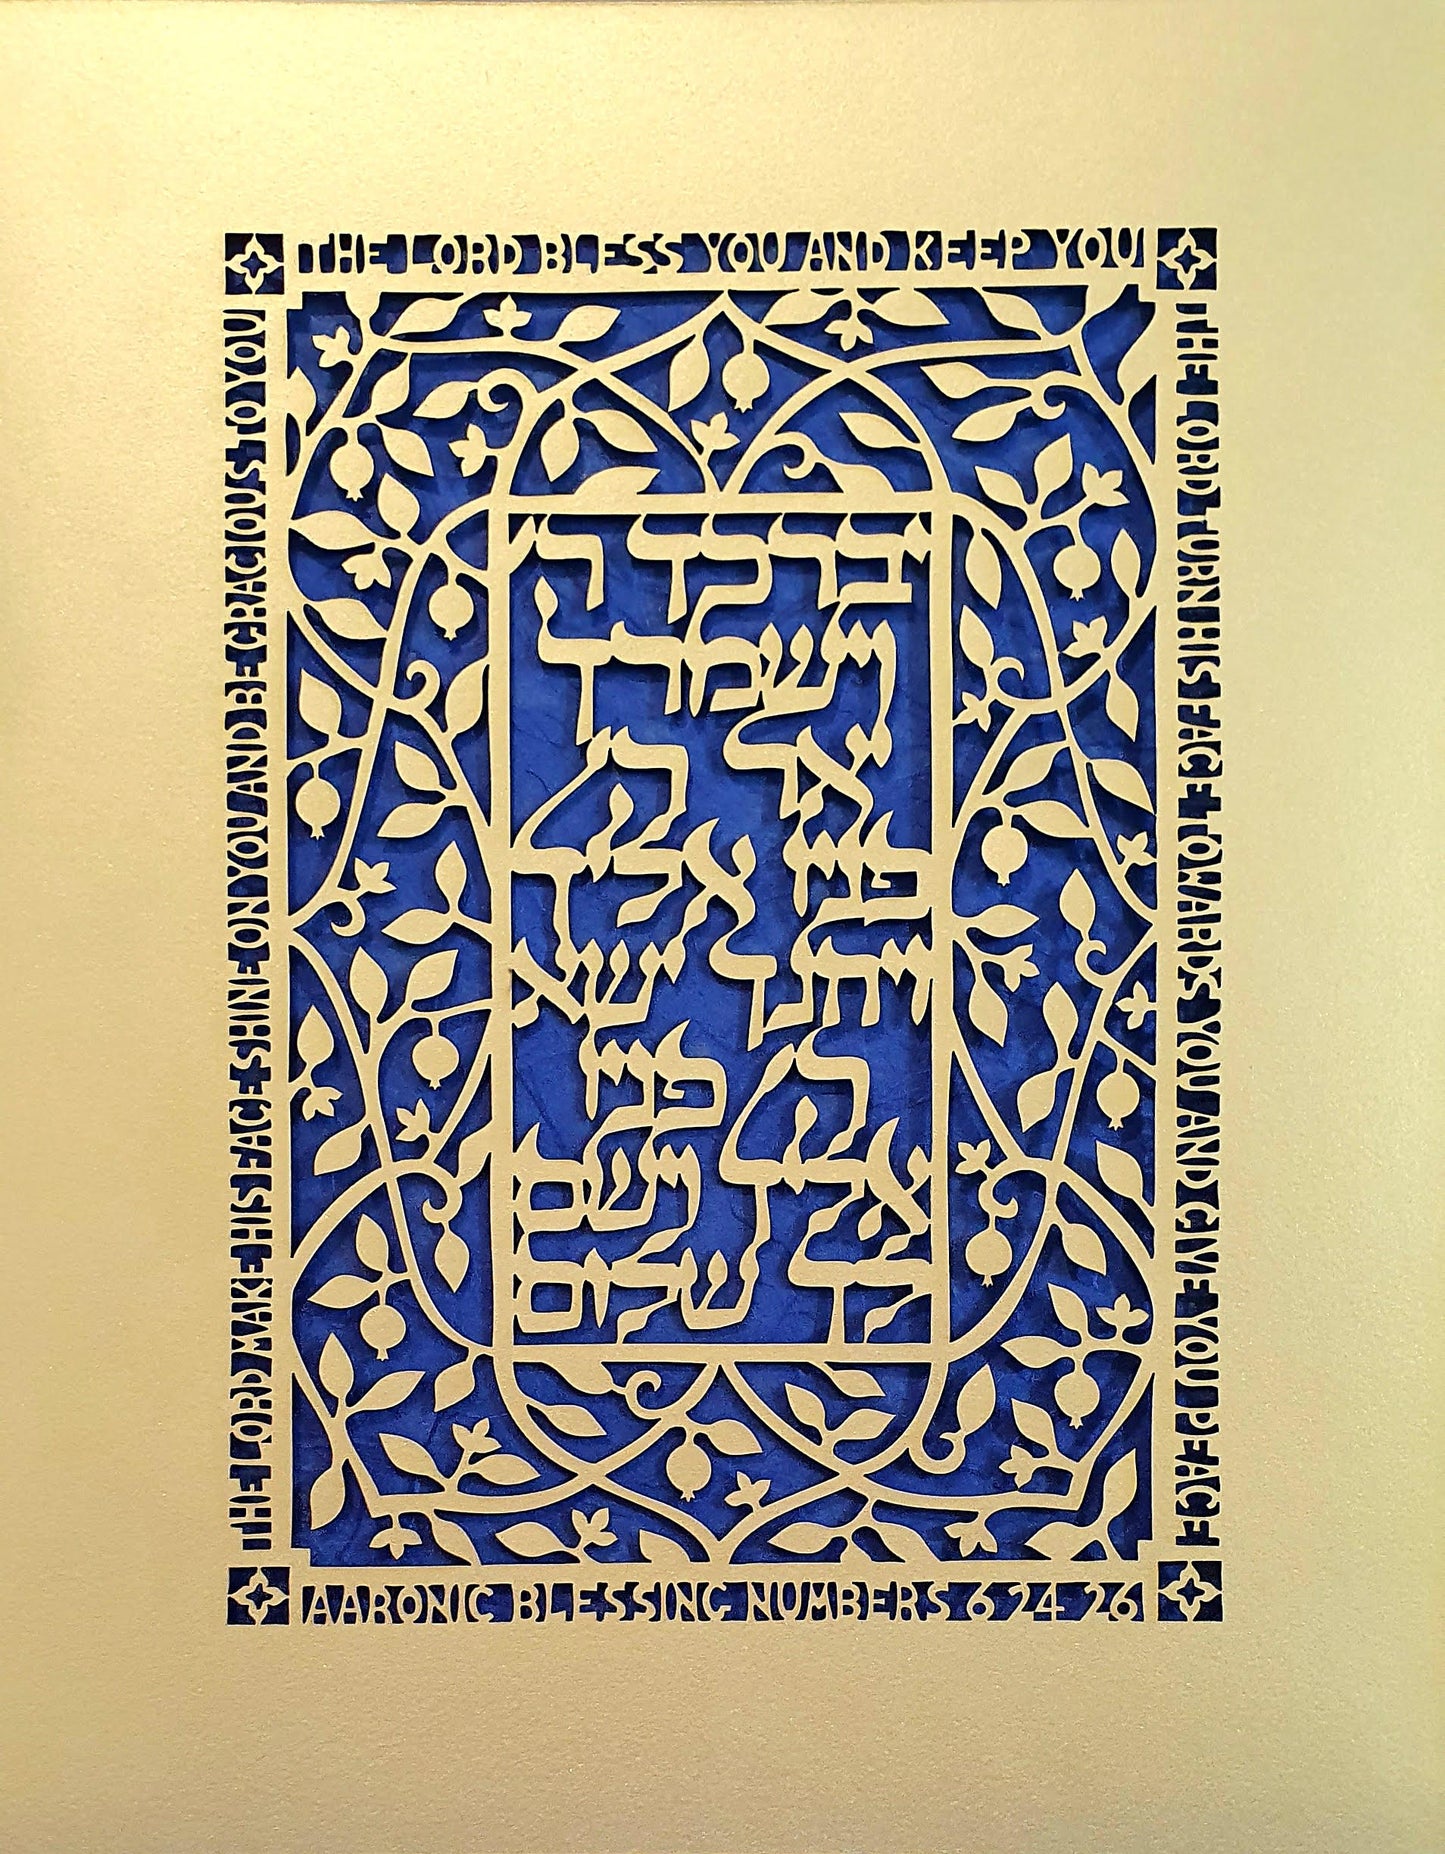 THE LORD BLESS YOU AND KEEP YOU
THE LORD MAKE HIS FACE SHINE ON YOU AND BE GRACIOUS TO YOU
THE LORD TURN HIS FACE TOWARDS YOU AND GIVE YOU PEACE
יברכך ה'
וישמרך
יאר ה'
פניו אליך
ויחנך ישא
ה' פניו
אליך וישם
לך שלום
AARONIC BLESSING NUMBERS 6 24 26